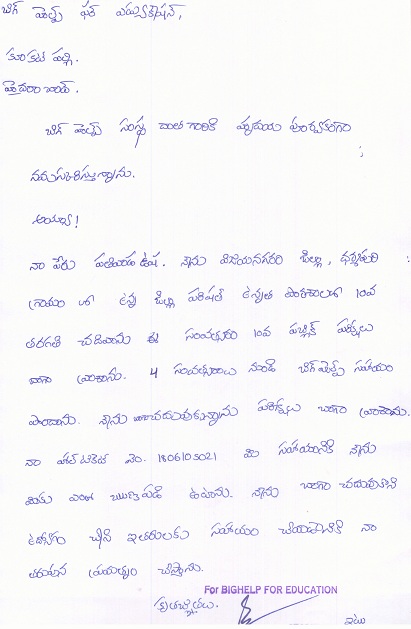 బిగ్ హెల్ప్ ఫర్ ఎడ్యుకేషన్,
కూకట్ పల్లి.
హైదరాబాద్.
బిగ్ హెల్ప్ సంస్థ వారికి హృదయ పూర్వకంగా
నమస్కరిస్తున్నాను.
అయ్యా!
నా పేరు ఉష. నేను విజయనగరం జిల్లా, ధర్మపురి
గ్రామం లో ఉన్న జిల్లా పరిషత్ ఉన్నత పాఠశాలలో 10వ
తరగతి చదివాను ఈ సంవత్సరం 10వ పబ్లిక్ పరీక్షలు
బాగా వ్రాశాను. 4 సంవత్సరాలు నుండి బిగ్ హెల్ప్ సహాయం
పొందాను. నేను బాగా చదువుకున్నాను పరీక్షలు బాగా వ్రాశాను.
నా హాల్ టికెట్ నెం. 1806105021 మీ సహాయానికి నేను
మీకు ఎంతో ఋణపడి ఉంటాను. నేను బాగా చదువుకొని
ఉద్యోగం చేసి ఇతరులకు సహాయం చేయడానికి నా
తరుపున ప్రయత్నం చేస్తాను.
For BIGHELP FOR EDUCATION
కృతజ్ఞతలు.
ఇట్లు